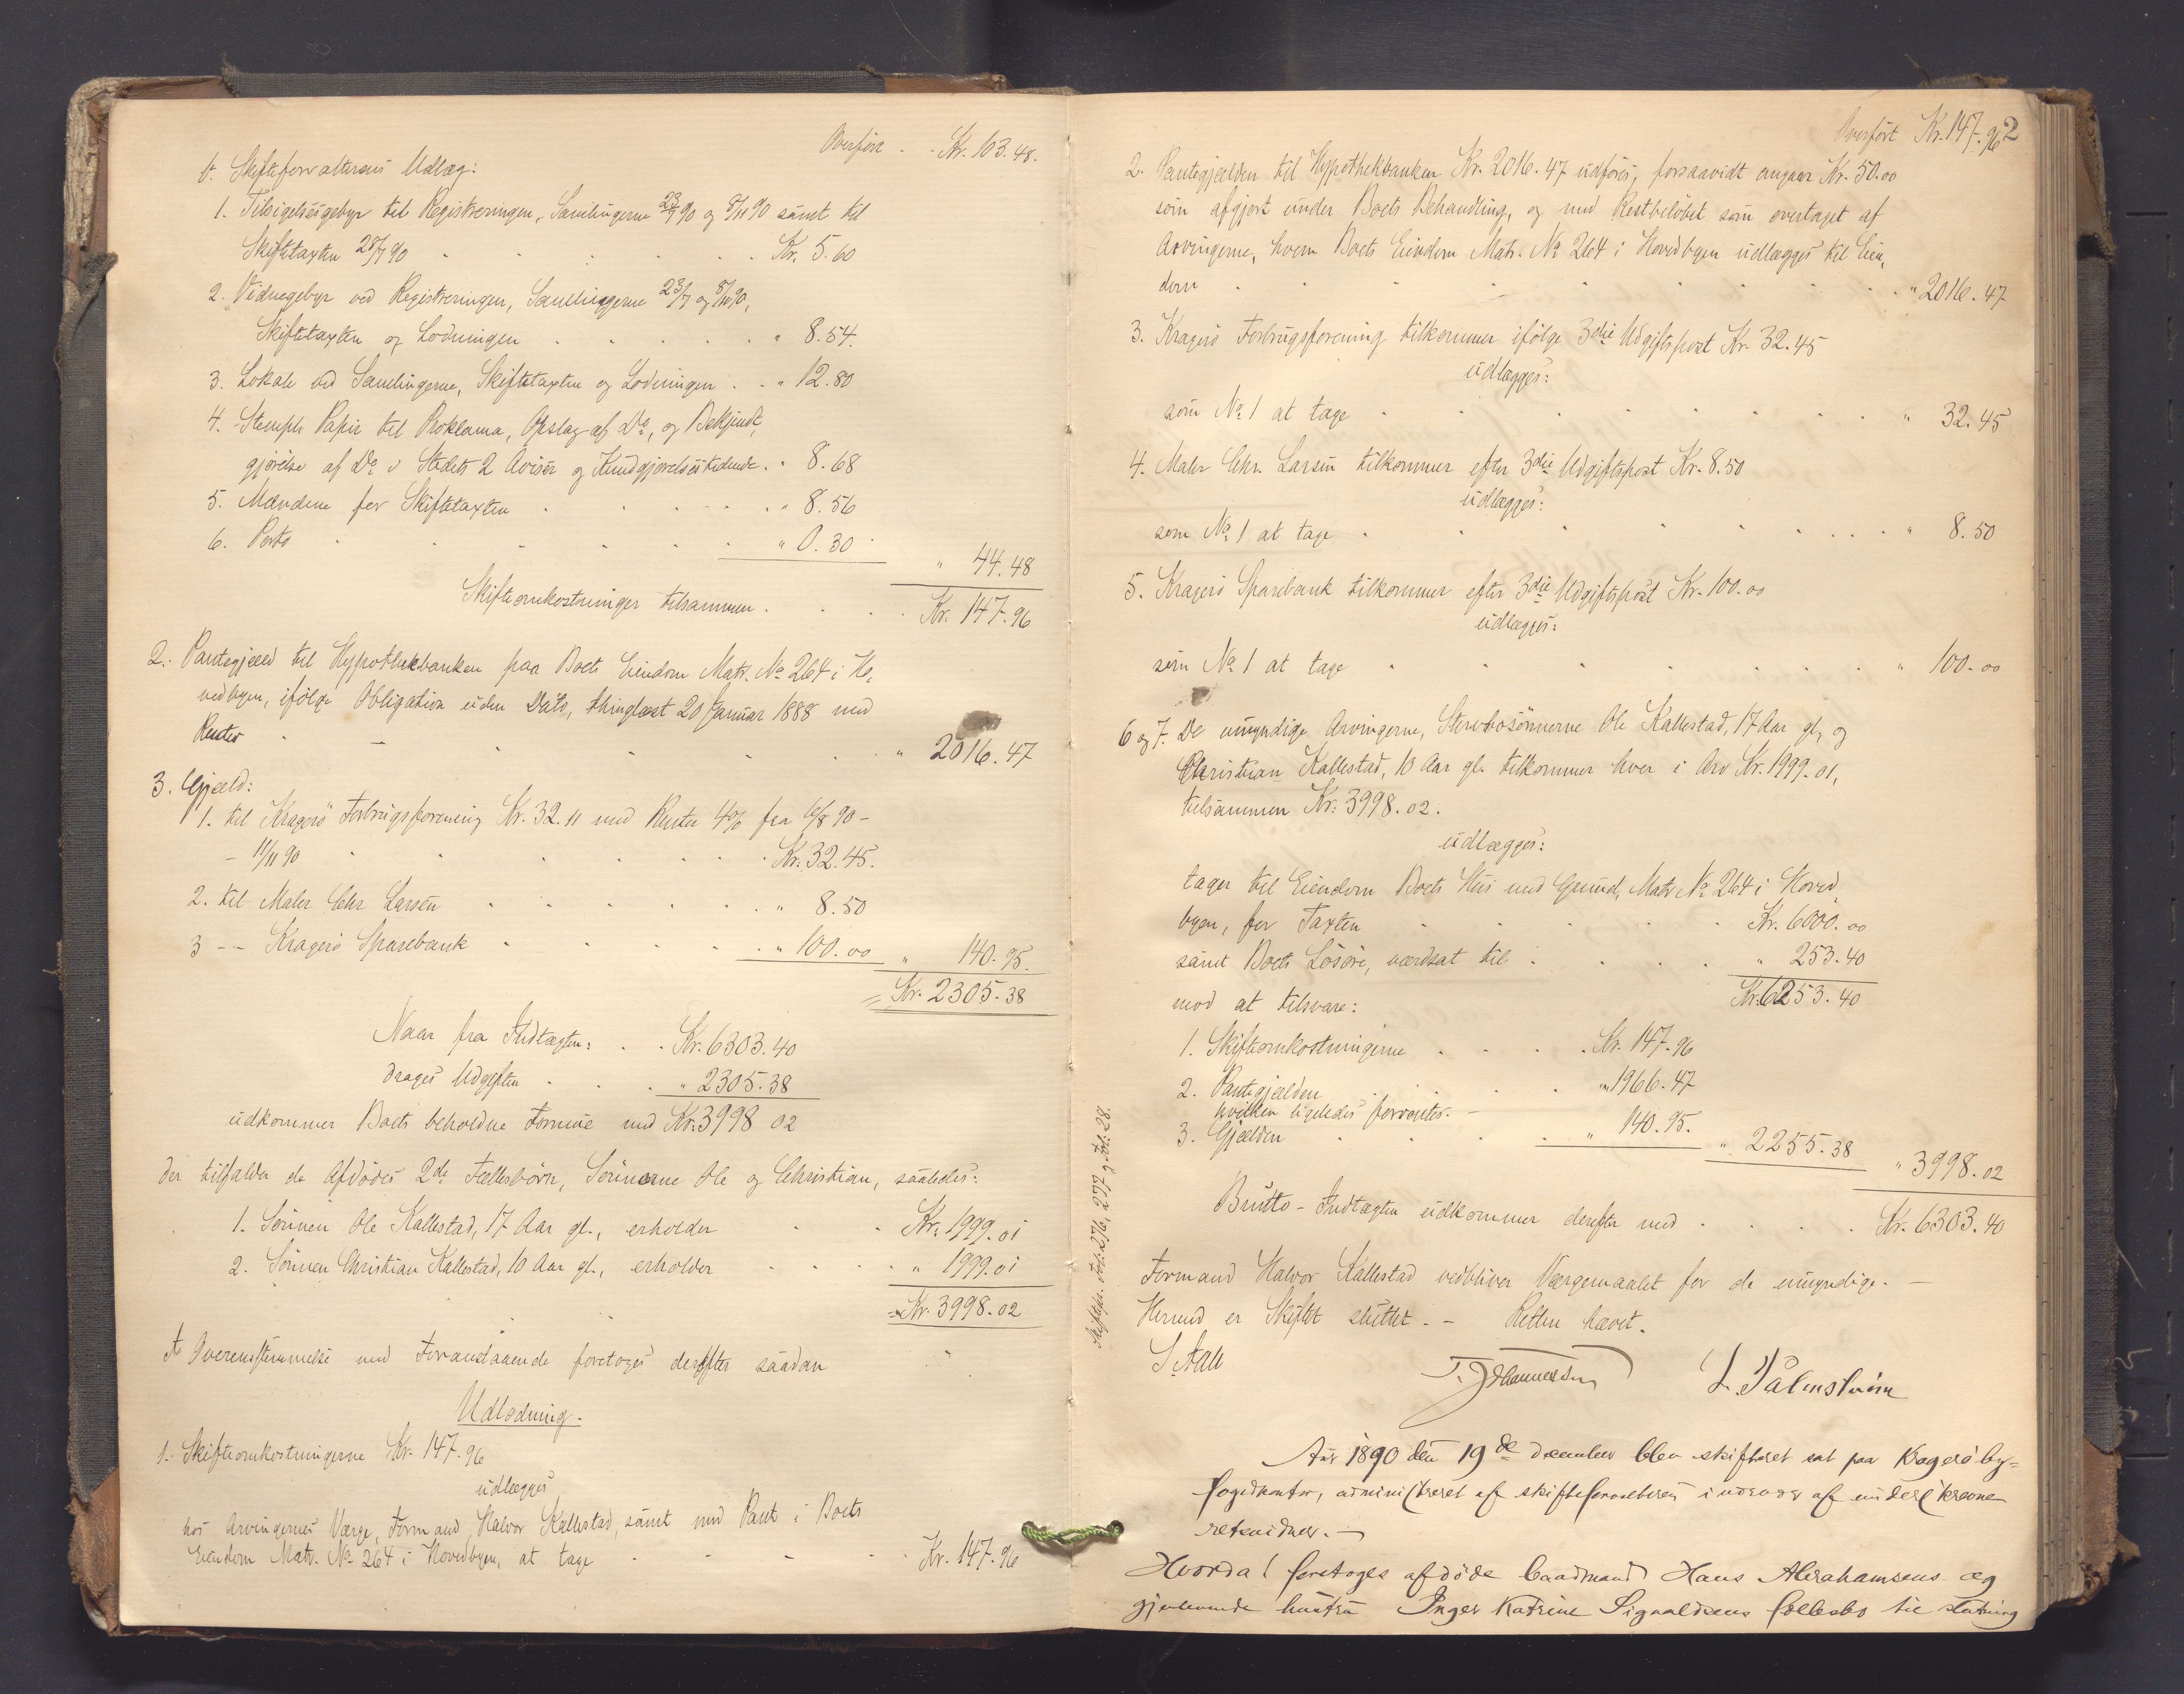 Overføres . . Kr. 103.48.
b. Skifteforvalterens Udlæg:
1. Tilsigelsesgebyr til Registreringen, Samlingerne 23/7 90 og 8/11 90 samt til
Skiftetaxten 28/7 90 . . . . Kr. 5.60
2. Vidnegebyr ved Registreringen, Samlingerne 23/7 og 8/11 90,
Skiftetaxten og Lodningen . . . . " 8.54.
3. Lokale ved Samlingerne, Skiftetaxten og Lodningen . . " 12.80
4. Stempl. Papir til Proklama, Opslag af Do, og Bekjendt,
gjørelse af Do i Stedets 2 Aviser og Kundgjørelsestidende . " 8.68
5. Mændene for Skiftetaxten . . . . " 8.56
6. Porto . . . . " 0.30
" 44.48
Skifteomkostninger tilsammen . . . Kr. 147.96
2. Pantegjæld til Hypothekbanken paa Boets Eiendom Matr. No 264 i Ho,
vedbyen, ifølge Obligation uden Dato, thinglæst 20 Januar 1888 med
Renter . . . . " 2016.47
3. Gjæld:
1. til Kragerö Forbrugsforening Kr. 32.11 med Renter 4% fra 6/8 90 -
- 11/11 90 . . . . Kr. 32.45.
2. til Maler Chr Larsen . . . . " 8.50
3 - - Kragerö Sparebank . . . . " 100.00 " 140.95.
Kr. 2305.38
Naar fra Indtægten: . . Kr. 6303.40
drages Udgiften . . . " 2305.38
udkommer Boets beholdne Formue med Kr. 3998 02
der tilfalder de Afdødes 2de Fællesbørn, Sønnerne Ole og Christian, saaledes:
1. Sønnen Ole Kallestad, 17 Aar gl., erholder . . Kr. 1999.01
2. Sønnen Christian Kallestad, 10 Aar gl., erholder . . . " 1999.01
Kr. 3998.02
I Overensstemmelse med Foranstaaende foretoges derefter saadan
Udlodning.
1. Skifteomkostningerne Kr. 147.96
udlægges
hos Arvingernes Værge, Formand Halvor Kallestad, samt med Pant i Boets
Eiendom Matr. No 264 i Hovedbyen, at tage . . . . Kr. 147.96
Overført Kr. 147.96 2
2. Pantegjælden til Hypothekbanken Kr. 2016.47 udføres, forsaavidt angaar Kr. 50.00
som afgjort under Boets Behandling, og med Restbeløbet som overtaget af
Arvingerne, hvem Boets Eiendom Matr. No 264 i Hovedbyen udlægges til Eien,
dom . . . . " 2016.47
3. Kragerö Forbrugsforening tilkommer ifølge 3die Udgiftspost Kr. 32.45
udlægges:
som No 1 at tage . . . . " 32.45
4. Maler Chr. Larsen tilkommer efter 3die Udgiftspost Kr. 8.50
udlægges:
som No 1 at tage . . . . " 8.50
5. Kragerö Sparebank tilkommer efter 3die Udgiftspost Kr. 100.00
udlægges:
som No 1 at tage . . . . " 100.00
6 og 7. De umyndige Arvingerne, Stervbosønnerne Ole Kallestad, 17 Aar gl., og
Christian Kallestad, 10 Aar gl. tilkommer hver i Arv Kr. 1999.01,
tilsammen Kr. 3998.02.
udlægges:
tager til Eiendom Boets Hus med Grund, Matr No 264 i Hoved,
byen, for Taxten . . . . Kr. 6000.00
samt Boets Løsøre, værdsat til . . . . " 253.40
Kr. 6253.40
mod at tilsvare:
1. Skifteomkostningerne . . . . Kr. 147.96
2. Pantegjælden . . . " 1966.47
hvilken ligeledes forrentes. -
3. Gjælden . . . . " 140.95. " 2255.38 " 3998.02
Brutto-Indtægten udkommer derefter med . . . . Kr. 6303.40
Formand Halvor Kallestad vedbliver Værgemaalet for de umyndige. -
Hermed er Skiftet sluttet. - Retten hævet.
S Aall T. Johannessen L. Palmstrøm
Skiftepr. Fol: 276, 277 og Fol: 28.
Aar 1890 den 19de december blev skifteret sat paa Kragerö by=
fogedkontor, administreret af skifteforvalteren i nærvær af underskrevne
retsvidner. -
Hvorda! foretoges afdøde baadmand Hans Abrahamsens og
gjenlevende hustru Inger Katrine Sigvaldsens fællesbo til slutning